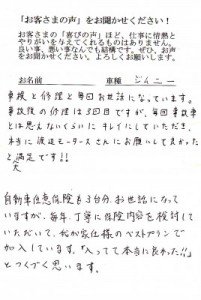 「お客さまの声」をお聞かせください！
お客さまの「喜びの声」ほど、仕事に情熱と
やりがいを与えてくれるものはありません。
良い事、悪い事なんでも結構です。ぜひ、お声
をお聞かせください。よろしくお願いします。
お名前 車種 ジムニー
車検と修理と毎回お世話になっています。
事故後の修理は3回目ですが、毎回事故車
とは思えないくらいにキレイにしていただき、
本当に渡辺モータースさんにお願いして良かった
と満足です!!
自動車任意保険も3台分、お世話になって
いますが、毎年、丁寧に保険内容を検討して
いただいて、我が家仕様のベストプランで
加入しています。「入ってて本当に良かった!!」
とつくづく思います。